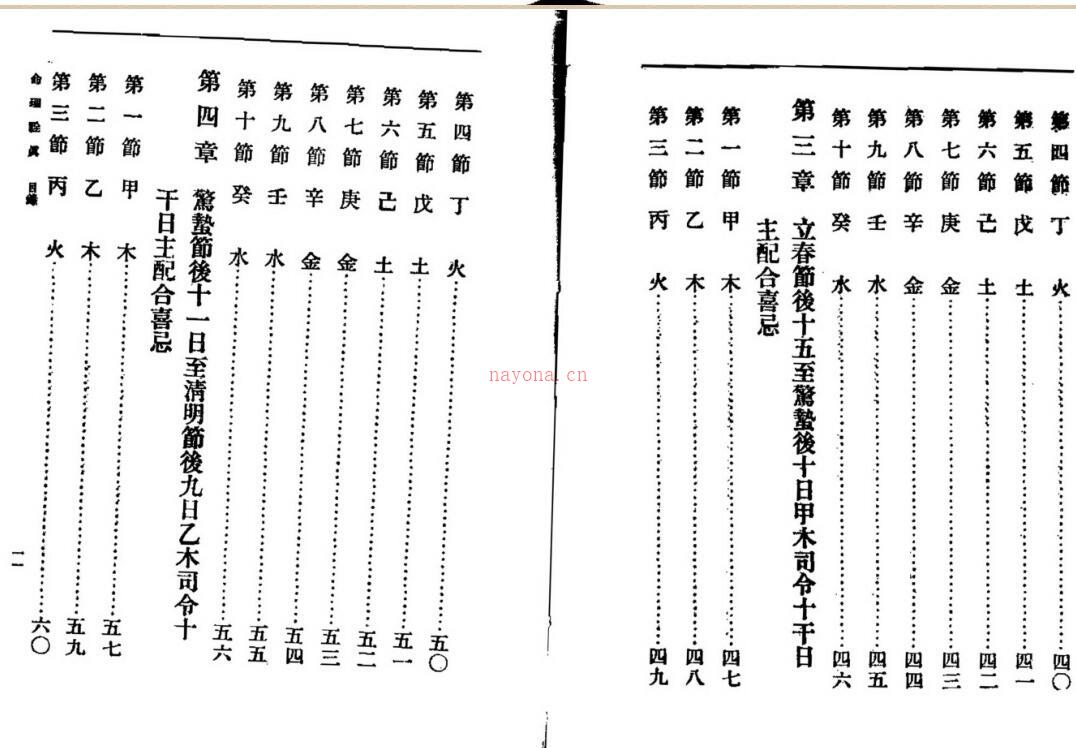 第四節 丁 火 四〇
第五節 戊 土 四一
第六節 己 土 四二
第七節 庚 金 四三
第八節 辛 金 四四
第九節 壬 水 四五
第十節 癸 水 四六
第三章 立春節後十五至驚蟄後十日甲木司令十干日
主配合喜忌
第一節 甲 木 四七
第二節 乙 木 四八
第三節 丙 火 四九
第四節 丁 火 五〇
第五節 戊 土 五一
第六節 己 土 五二
第七節 庚 金 五三
第八節 辛 金 五四
第九節 壬 水 五五
第十節 癸 水 五六
第四章 驚蟄節後十一日至清明節後九日乙木司令十
干日主配合喜忌
第一節 甲 木 五七
第二節 乙 木 五九
第三節 丙 火 六〇
命理 目錄
nayona.cn